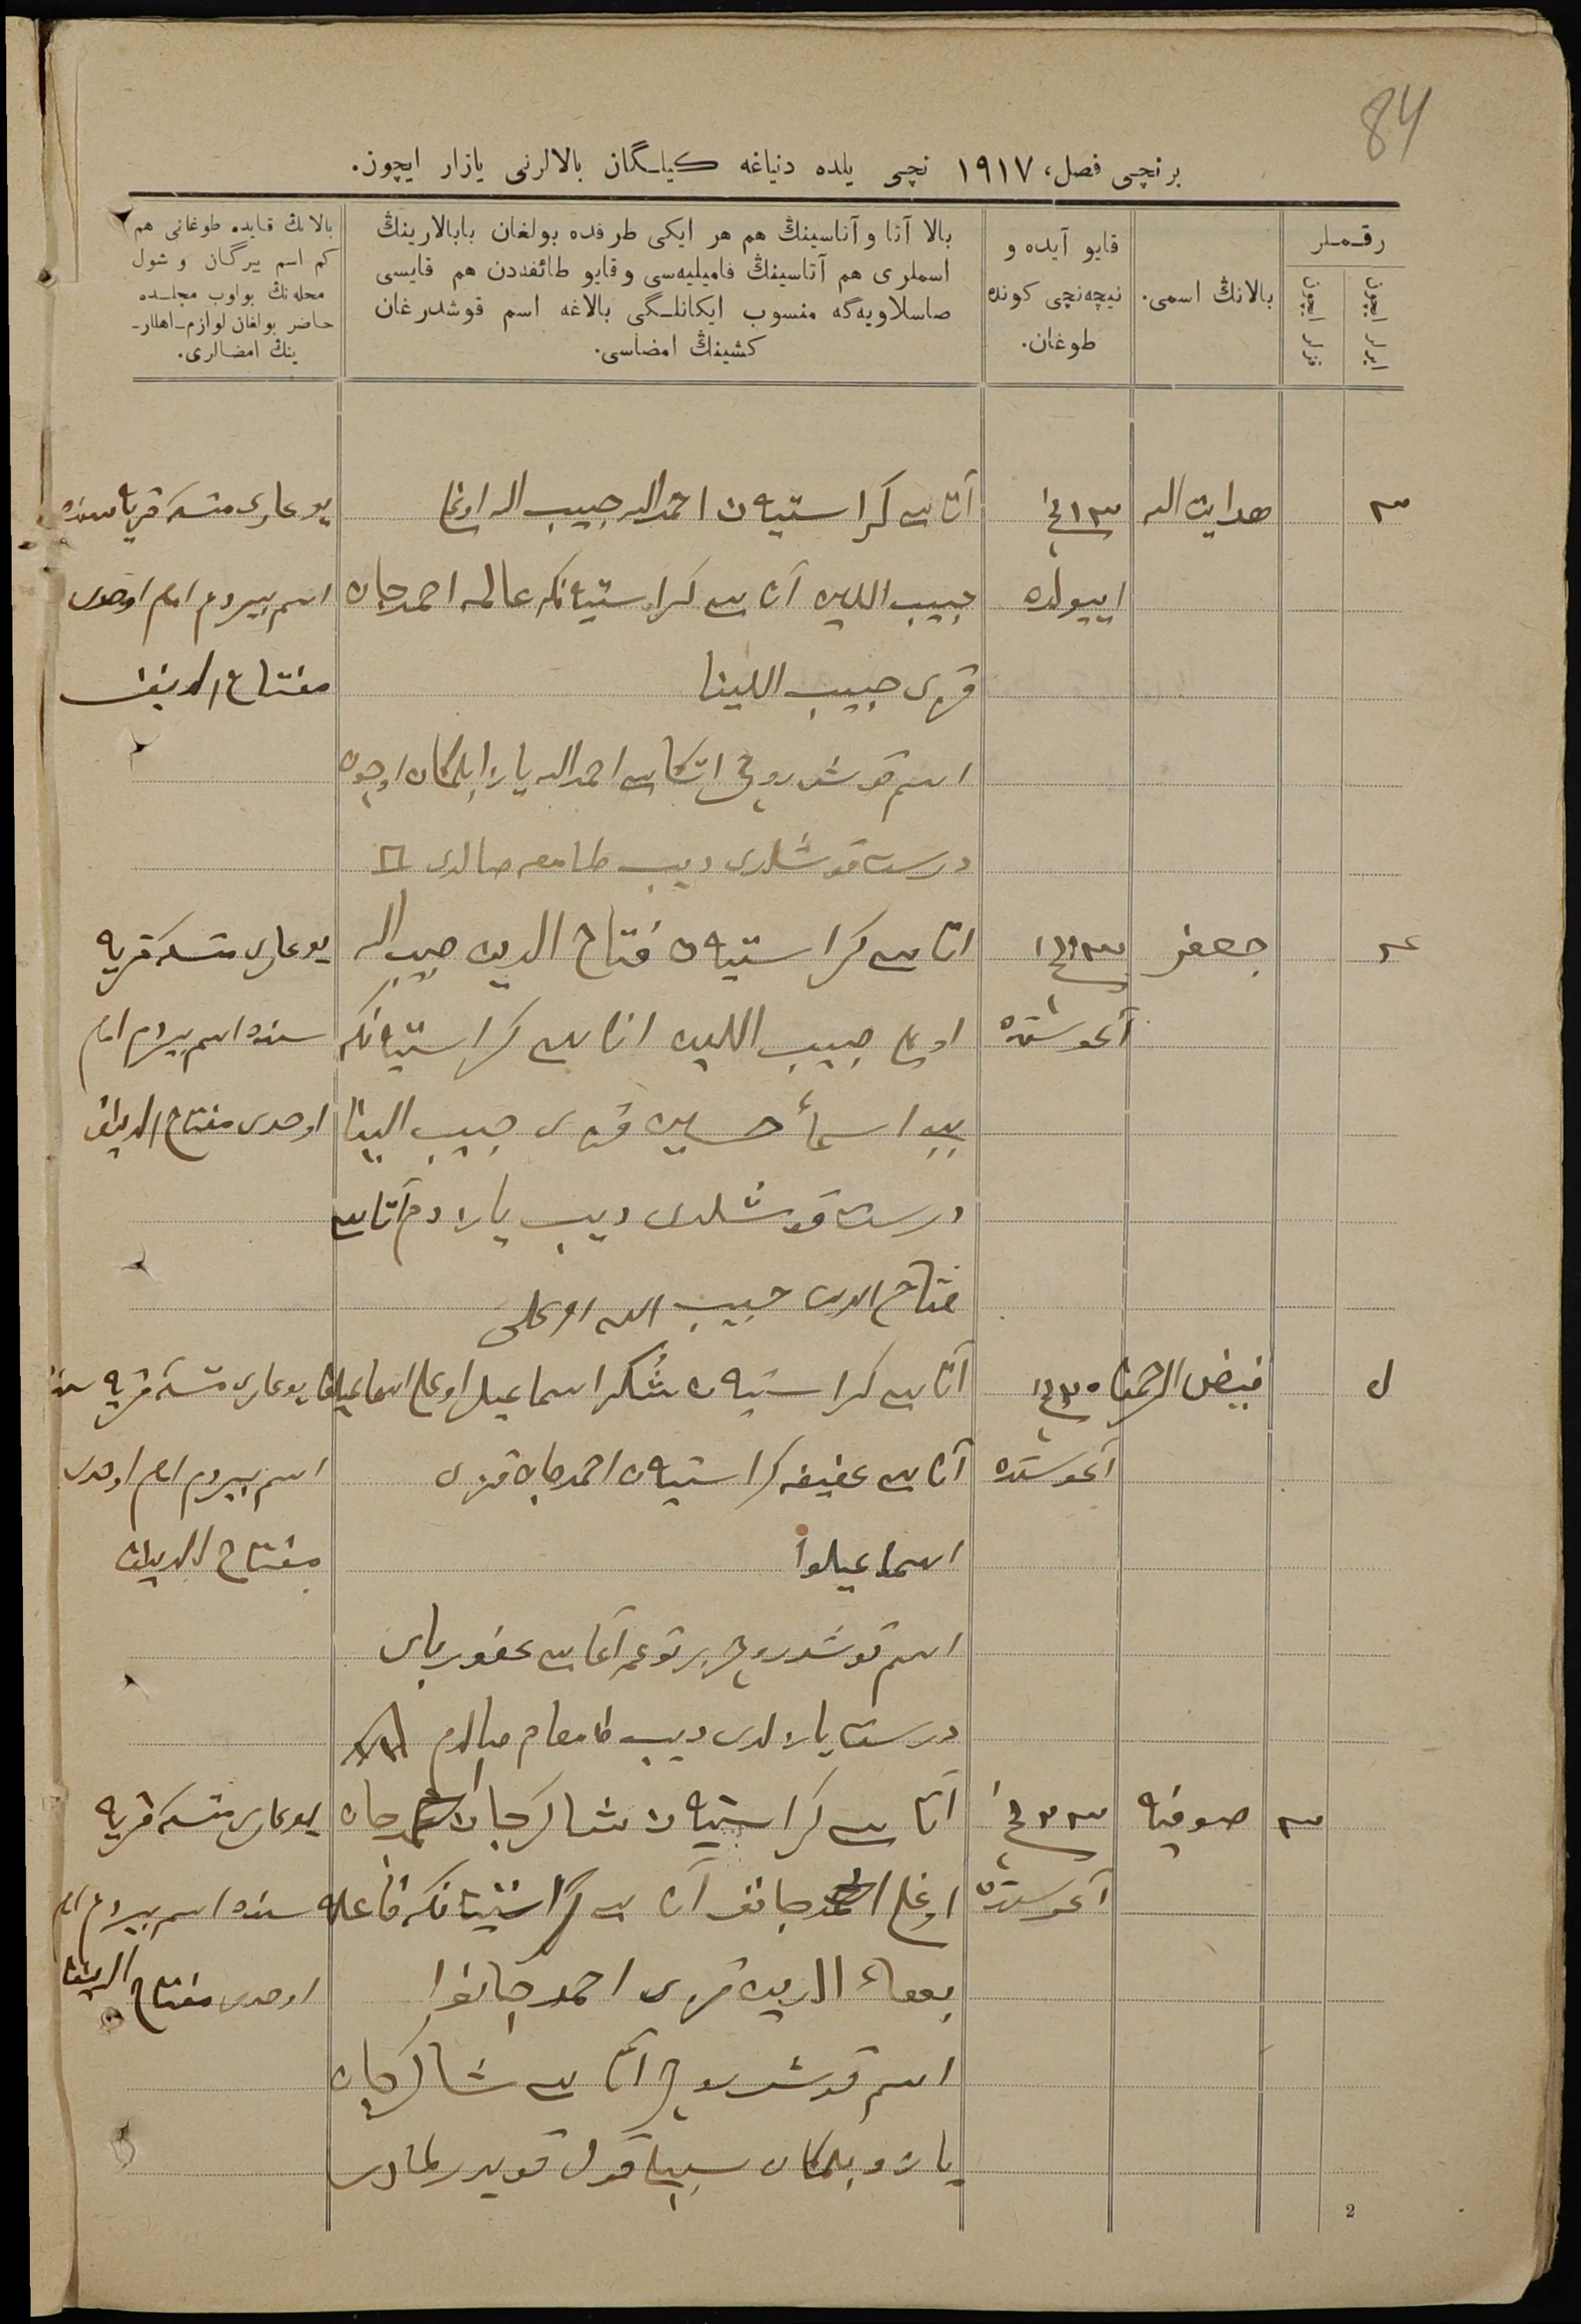 84
برنچی فصل، ۱۹۱۷ نچی یلده دنیاغه کیلـگان بالالرنی یازار ایچون.
رقـملر
ایرلر ایچون
قزلر ایچون
بالانڭ اسمی.
قایو آیده و
نیچه‌نچی کونده
طوغان.
بالا آتا و آناسینڭ هم هر ایکی طرفده بولغان بابالارینڭ
اسملری هم آتاسینڭ فامیلیه‌سی و قایو طائفه‌دن هم قایسی
صاسلاویه‌گه منسوب ایکانلـگی بالاغه اسم قوشدرغان
کشینڭ امضاسی.
بالانڭ قایده طوغانی هم
کم اسم بیرگان و شول
محله‌نڭ بولوب مجلـده
حاضر بولغان لوازم-اهللر-
ینڭ امضالری.
۳
هدایت الله
۱۳ نچی
اییولده
آتاسی کراستیان احمدالله حبیب الله اوغلی
حبیب اللین آناسی کراستیانکه عالمه احمدجان
قزی حبیب اللینا
اسم قوشدروچی اتکاسی احمدالله یازا بلمکان اوچون
درست قوشلدی دیب طامغه صالدی
یوغاری قریه‌سنده
اسم بیردم امام اوحدی
مفتاح الدینف
۴
جعفر
آغوستده
اتاسی کراستیان فتاح الدین حبیب الله
اوغلی حبیب اللین اناسی کراستیانکه
بیبی اسماء حسین قزی حبیب اللینا
درست قوشلدی دیب یازدم آتاسی
فتاح الدین حبیب الله اوغلی
یوغاری قریه
سنده اسم بیردم امام
اوحدی مفتاح الدینف
۵
فیض الرحمن
۲۰ نچی
آغوستده
آتاسی کراستیان شُکر اسماعیل اوغلی اسماعیلف
آناسی عفیفه کراستیان احمدجان قزی
اسماعیلوا
اسم قوشدروچی بر توغمه آغاسی غفور بای
درست یازلدی دیب طامغام صالدم
یوغاری قریه سنده
اسم بیردم امام اوحدی
مفتاح الدینف
۳
صوفیه
۲۳ نچی
آغوستده
آتاسی کراستیان شاکرجان احمدجان
اوغلی احمدجانف آناسی کراستیانکه فاعله
بهاء الدین قزی احمدجانوا
اسم قوشدروچی آتاسی شاکرجان
یازو بلمکان سببلی قول قویدرلمادی
یوغاری قریه
سنده اسم بیردم امام
اوحدی مفتاح الدینف
2